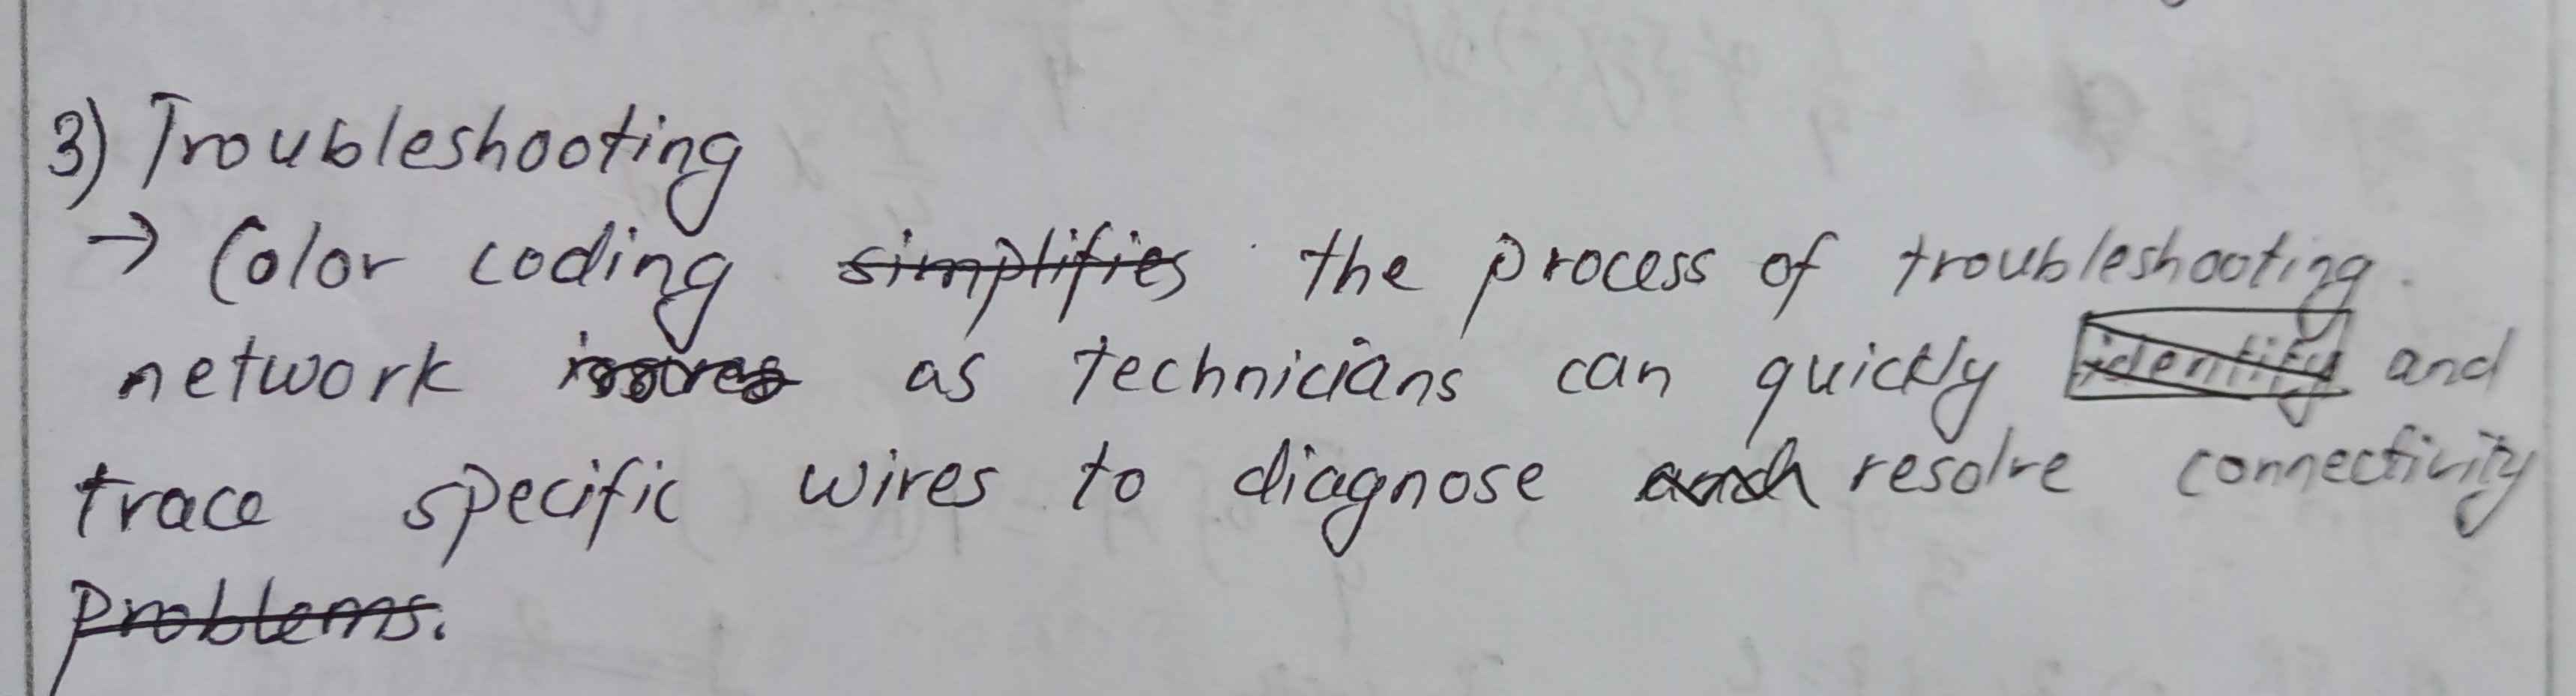 3) Troubleshooting
→ Color coding simplifies the process of troubleshooting.
network issues as technicians can quickly identify and
trace specific wires to diagnose and resolve connectivity
problems.